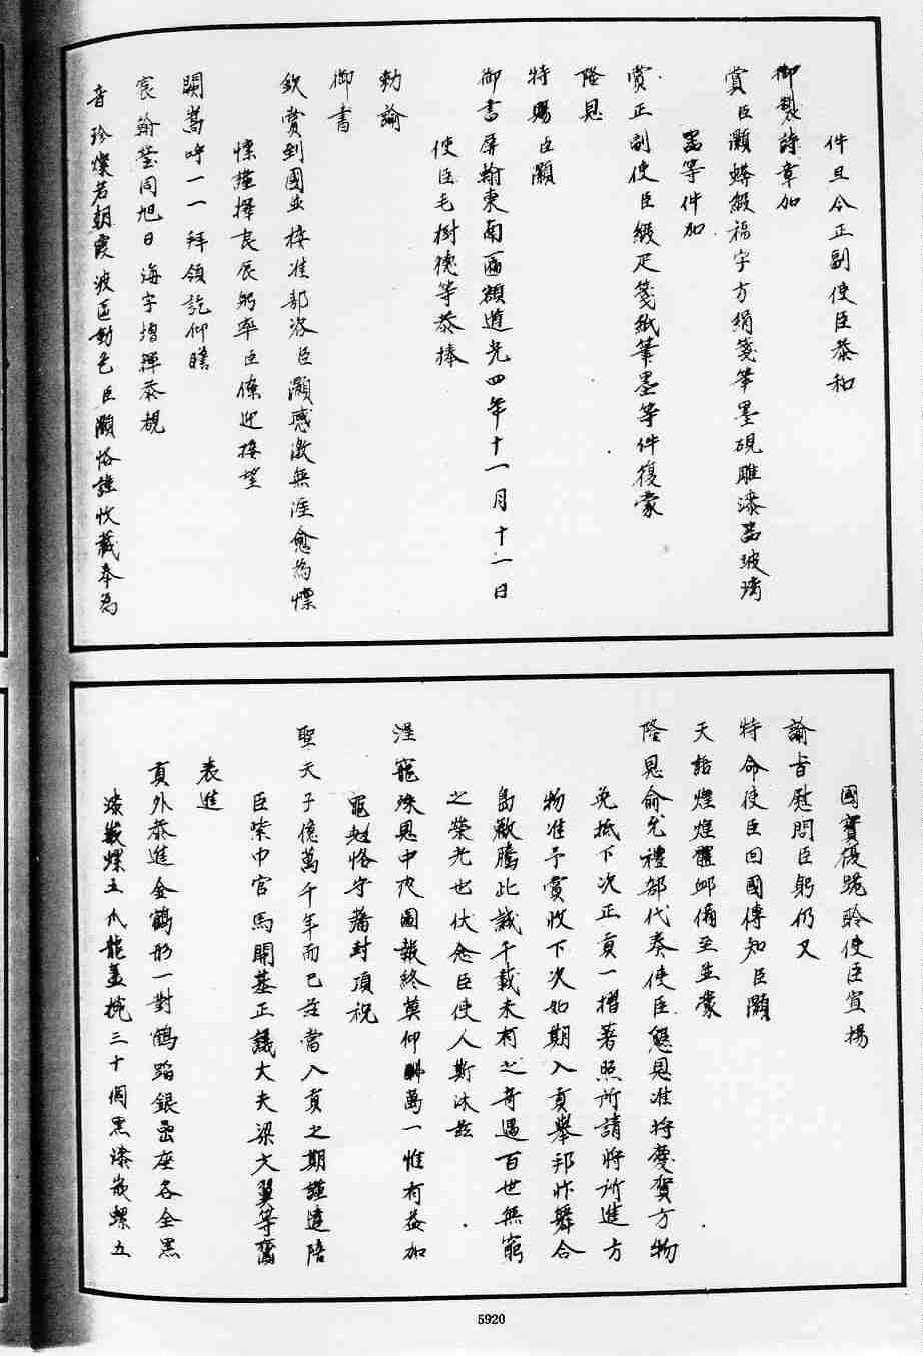 件且令正副使臣恭和
御製詩章加
賞臣灝蟒緞福字方絹箋筆墨硯雕漆器玻璃
器等件加
賞正副使臣緞疋箋紙筆墨等件復蒙
隆恩
特賜臣灝
御書屏翰東南匾額道光四年十一月十一日
使臣毛樹德等恭捧
勅諭
御書
欽賞到國並接准部咨臣灝感激無涯愈為慄
慄謹擇良辰躬率臣僚迎接望
闕嵩呼一一拜領訖仰瞻
宸翰瑩同旭日海宇增輝恭覩
音珍燦若朝霞波區動色臣灝恪謹收藏奉為
國寶復跪聆使臣宣揚
諭旨慰問臣躬仍又
特命使臣回國傳知臣灝
天語煌煌體卹備至並蒙
隆恩俞允禮部代奏使臣懇恩准將慶賀方物
免抵下次正貢一摺著照所請將所進方
物准予賞收下次如期入貢舉邦忭舞合
島歡騰此誠千載未有之奇遇百世無窮
之榮光也伏念臣使人斯沐茲
渥寵殊恩中夜圖報終莫仰酬萬一惟有益加
黽勉恪守藩封頂祝
聖天子億萬千年而已茲當入貢之期謹遣陪
臣紫巾官馬開基正議大夫梁文翼等齎
表進
貢外恭進金鶴形一對鶴踏銀嵒座各全黑
漆嵌螺五爪龍蓋椀三十個黑漆嵌螺五
5920